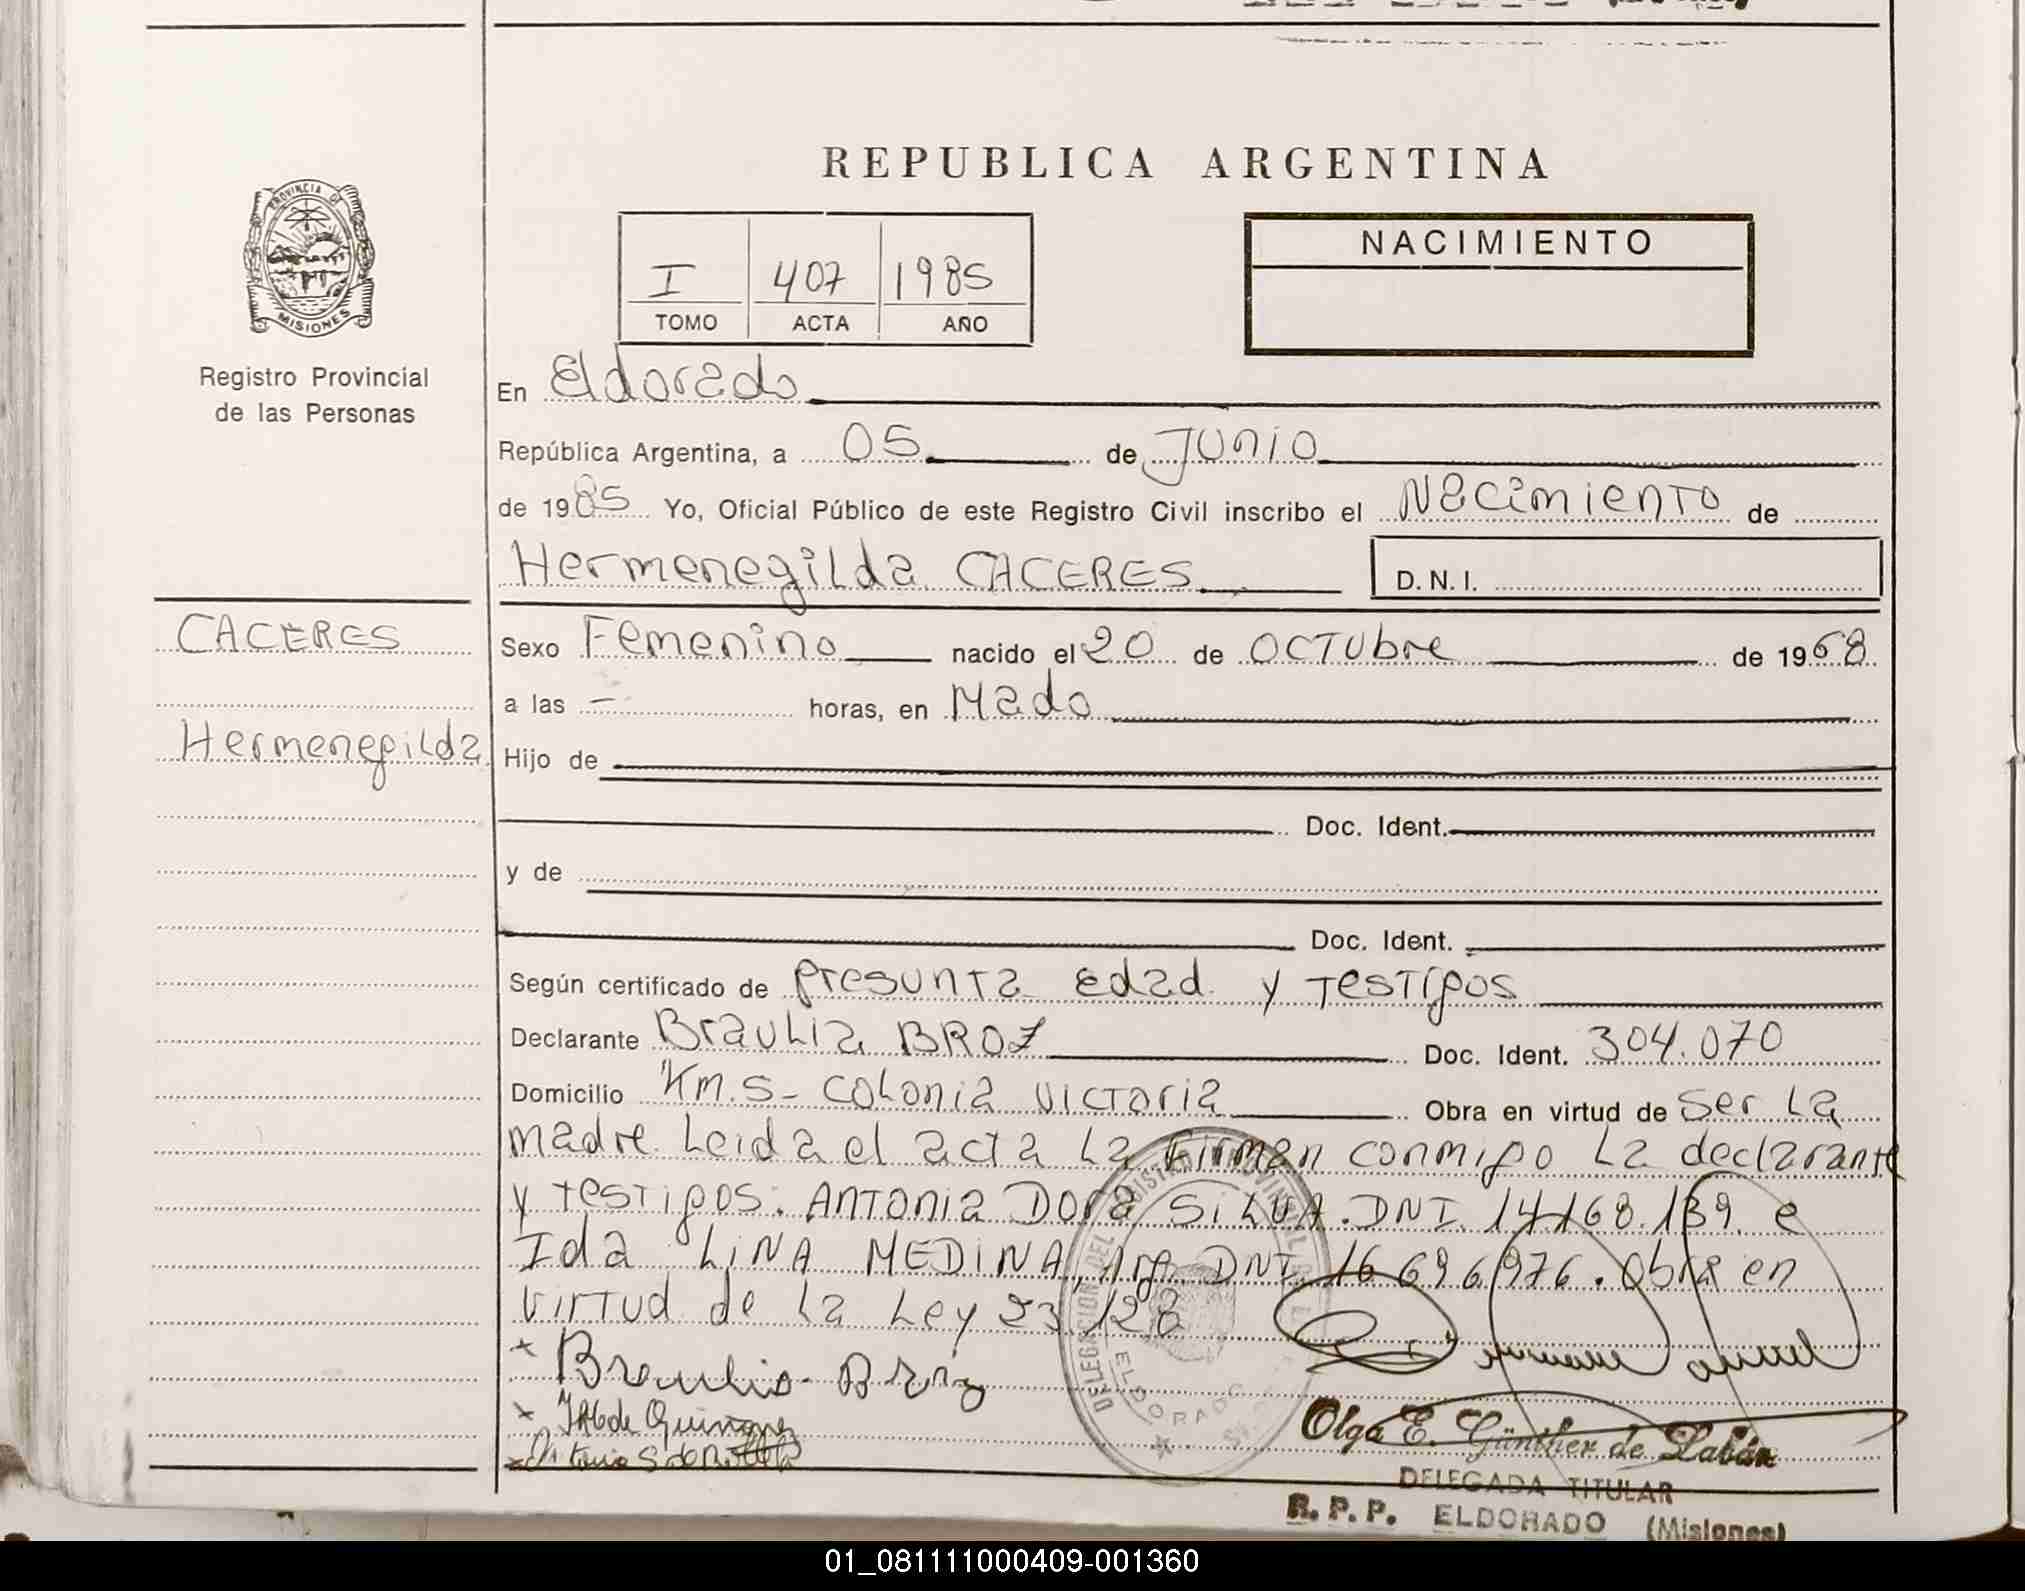 REPUBLICA ARGENTINA
PROVINCIA DE
MISIONES
Registro Provincial
de las Personas
I 407 1985
TOMO ACTA AÑO
NACIMIENTO
En Eldorado
República Argentina, a 05 de Junio
de 1985 Yo, Oficial Público de este Registro Civil inscribo el Nacimiento de
Hermenegilda CACERES D.N.I.
CACERES
Hermenegilda
Sexo Femenino nacido el 20 de OCTUbre de 1968
a las - horas, en Mado
Hijo de
Doc. Ident.
y de
Doc. Ident.
Según certificado de presunta edad y testigos
Declarante Braulia BROZ Doc. Ident. 304.070
Domicilio Km.5- Colonia Victoria Obra en virtud de Ser La
madre. Leida el acta La Firman conmigo La declarante
y testigos: Antonia Dora SiLVA. DNI. 14.168.139. e
Ida LiNA MEDINA, Arg. DNI. 16.696.976. Obra en
virtud de la Ley 23.128
x Braulia Broz
x
x
DELEGACION DEL REGISTRO PROVINCIAL
ELDORADO
Olga E. Günther de Labán
DELEGADA TITULAR
R. P. P. ELDORADO (Misiones)
01_081111000409-001360